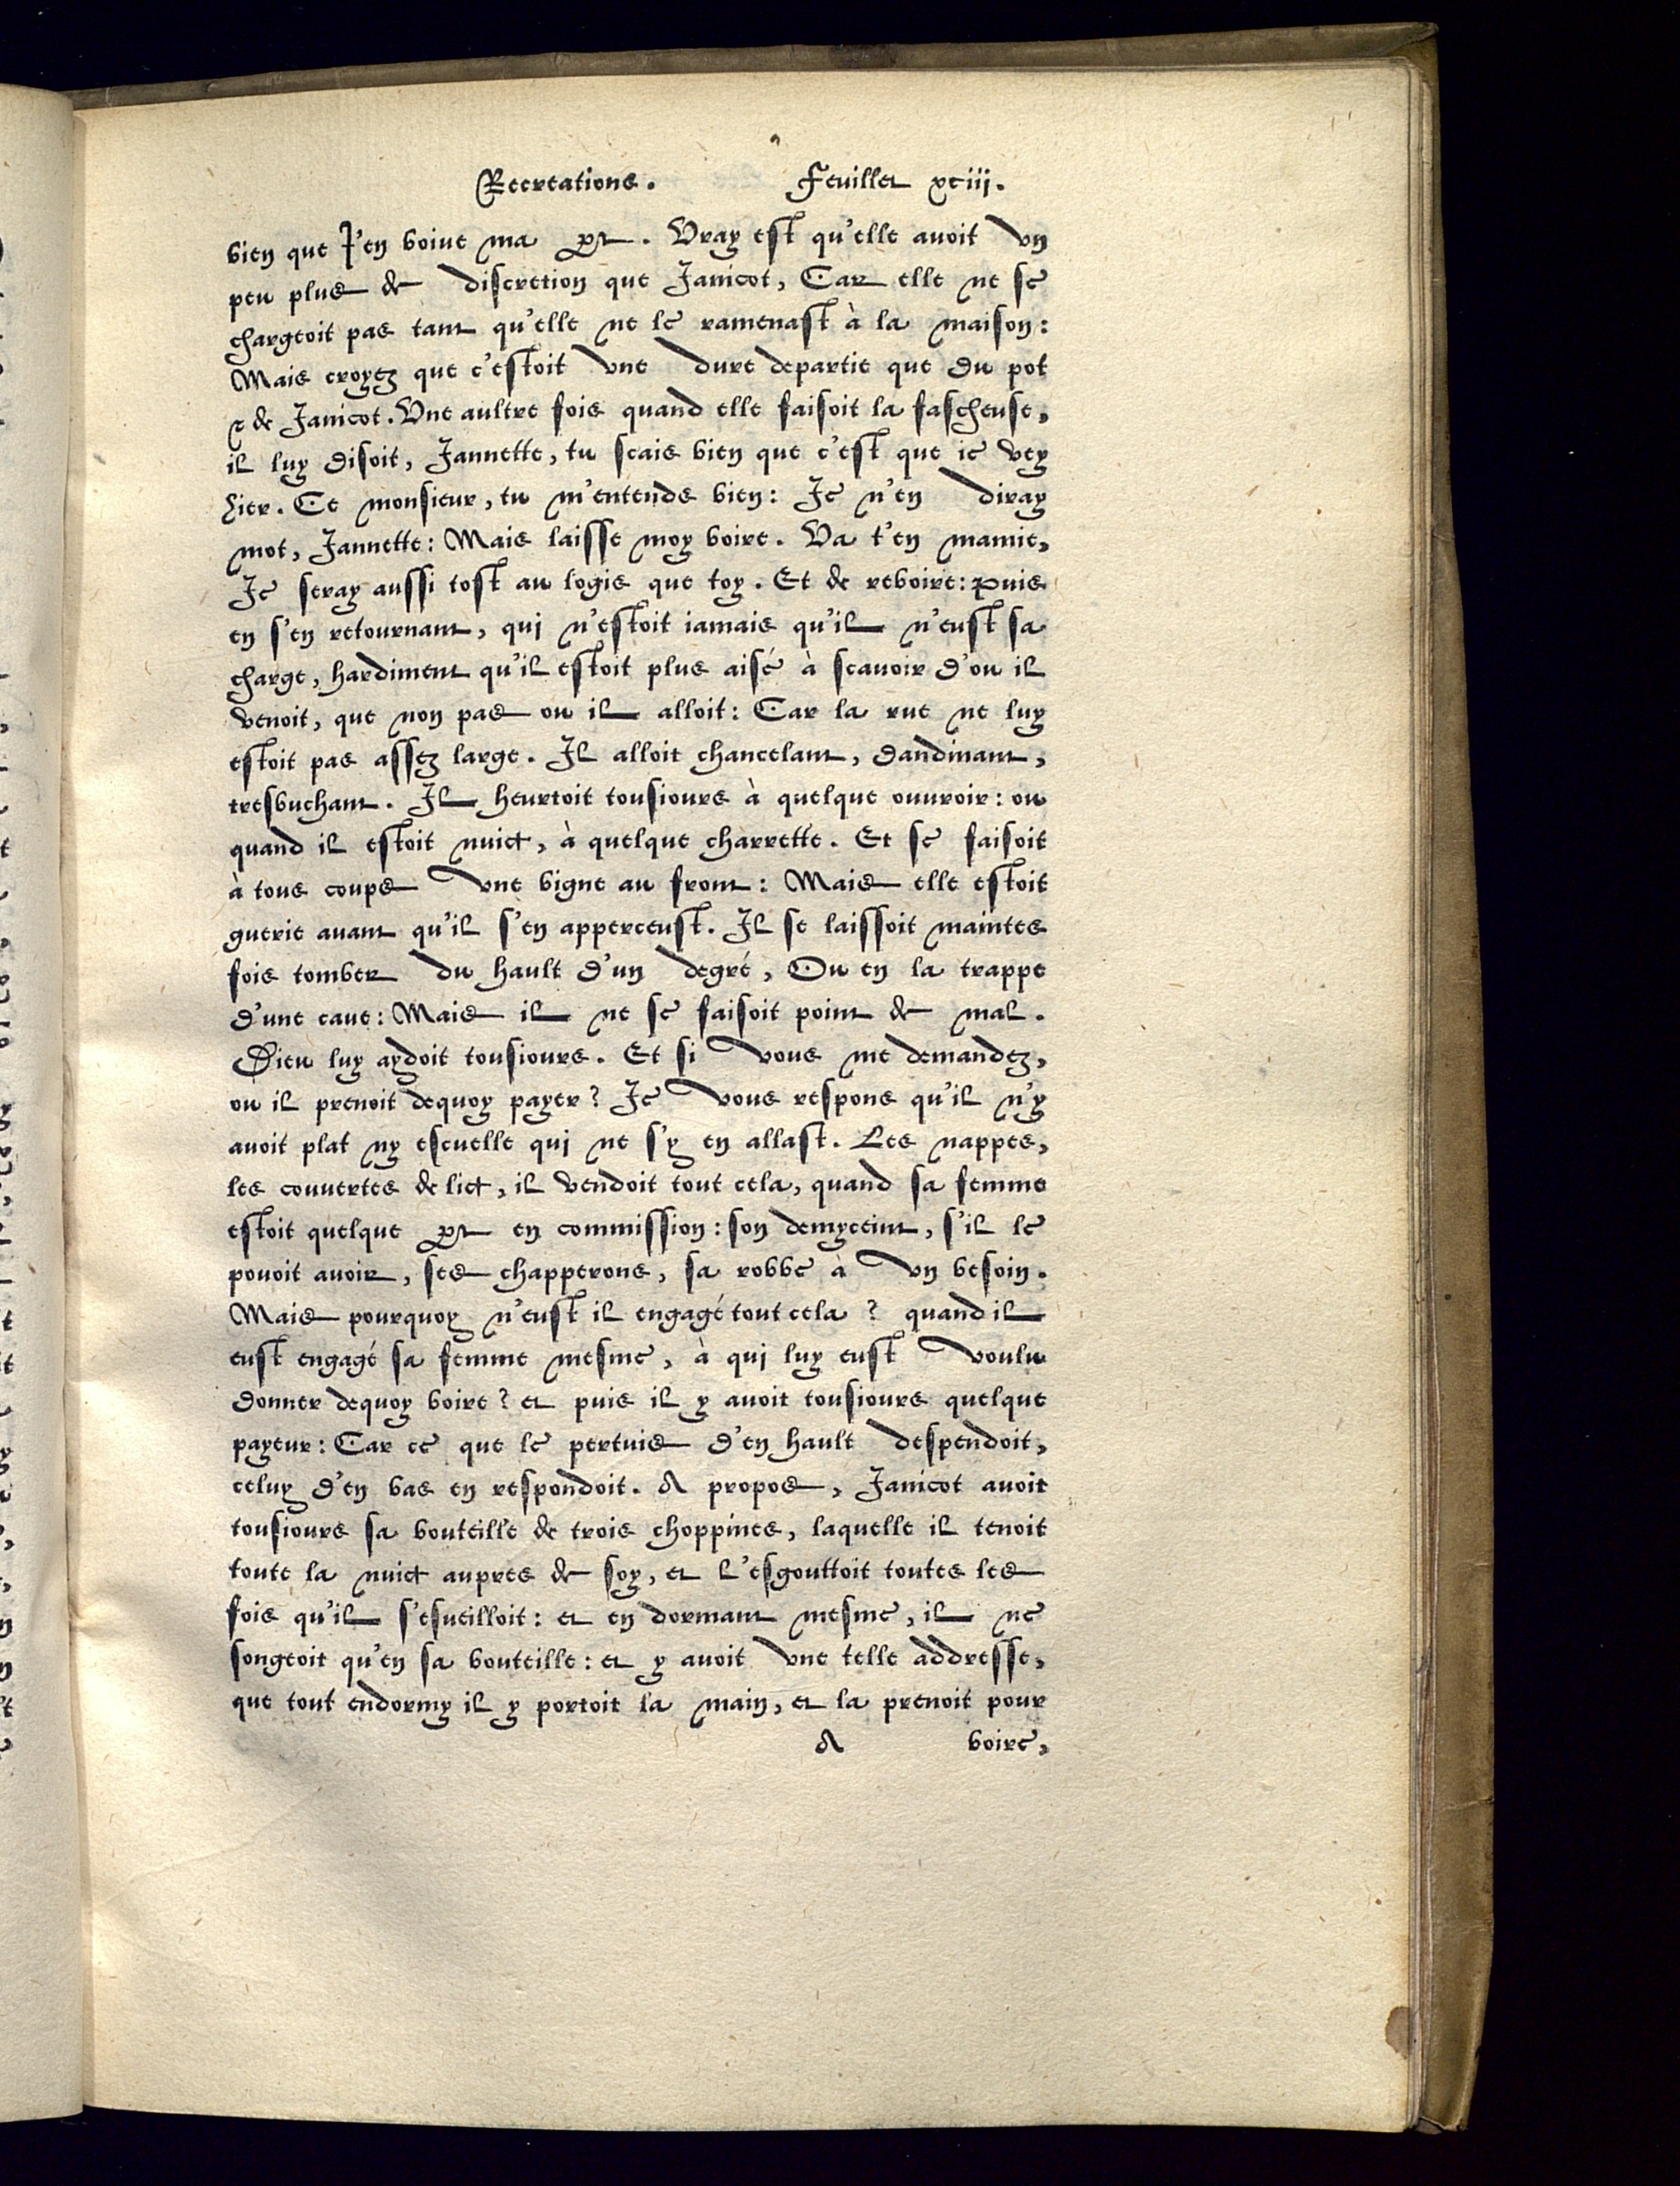 Recreations. Feuillet xciij.
bien que J'en boiue ma part. Vray est qu'elle auoit vn
peu plus de discretion que Janicot, Car elle ne se
chargeoit pas tant qu'elle ne le ramenast à la maison:
Mais croyez que c'estoit vne dure departie que du pot
& de Janicot. Vne aultre fois quand elle faisoit la fascheuse,
il luy disoit, Jannette, tu scais bien que c'est que ie vey
hier. Ce monsieur, tu m'entends bien: Je n'en diray
mot, Jannette: Mais laisse moy boire. Va t'en mamie,
Je seray aussi tost au logis que toy. Et de reboire: Puis
en s'en retournant, qui n'estoit iamais qu'il n'eust sa
charge, hardiment qu'il estoit plus aisé à scauoir d'ou il
venoit, que non pas ou il alloit: Car la rue ne luy
estoit pas assez large. Il alloit chancelant, dandinant,
tresbuchant. Il heurtoit tousiours à quelque ouuroir: ou
quand il estoit nuict, à quelque charrette. Et se faisoit
à tous coups vne bigne au front: Mais elle estoit
guerie auant qu'il s'en apperceust. Il se laissoit maintes
fois tomber du hault d'un degré, Ou en la trappe
d'une caue: Mais il ne se faisoit point de mal.
Dieu luy aydoit tousiours. Et si vous me demandez,
ou il prenoit dequoy payer? Je vous respons qu'il n'y
auoit plat ny escuelle qui ne s'y en allast. Les nappes,
les couuertes de lict, il vendoit tout cela, quand sa femme
estoit quelque part en commission: son demyceint, s'il le
pouoit auoir, ses chapperons, sa robbe à vn besoin.
Mais pourquoy n'eust il engagé tout cela? quand il
eust engagé sa femme mesme, à qui luy eust voulu
donner dequoy boire? et puis il y auoit tousiours quelque
payeur: Car ce que le pertuis d'en hault despendoit,
celuy d'en bas en respondoit. A propos, Janicot auoit
tousiours sa bouteille de trois choppines, laquelle il tenoit
toute la nuict aupres de soy, et l'esgouttoit toutes les
fois qu'il s'esueilloit: et en dormant mesme, il ne
songeoit qu'en sa bouteille: et y auoit vne telle addresse,
que tout endormy il y portoit la main, et la prenoit pour
A boire,